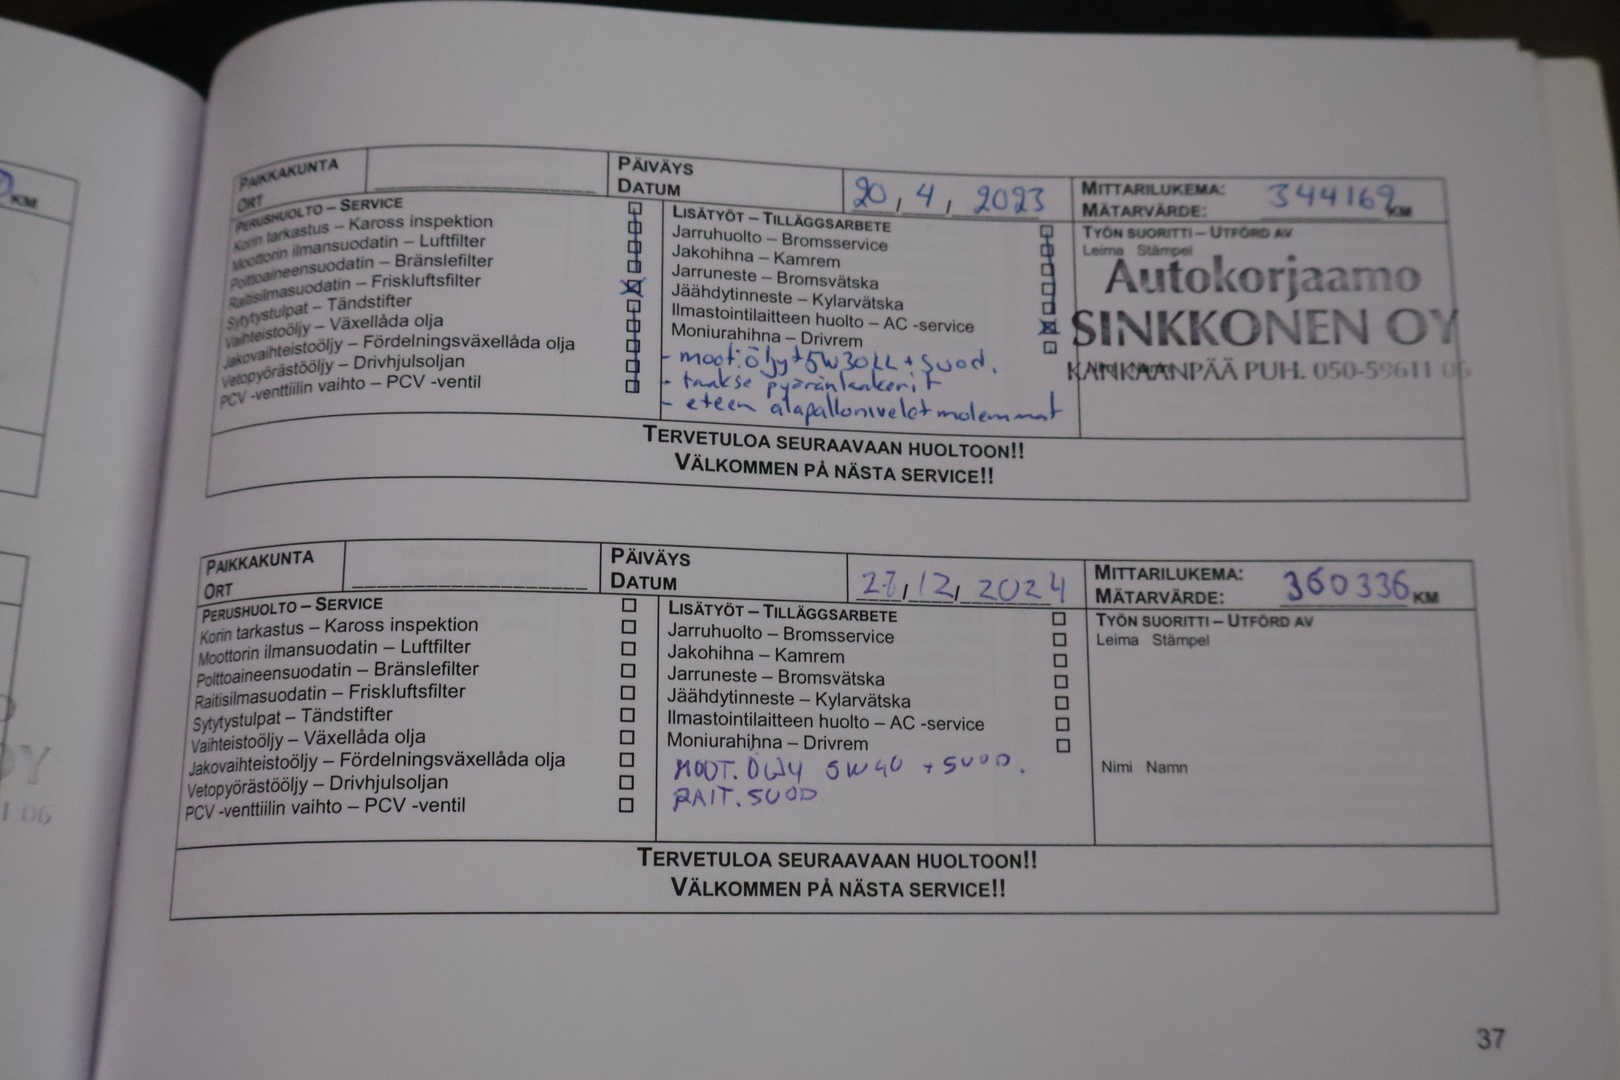 KM
PAIKKAKUNTA
ORT
PÄIVÄYS
DATUM
20, 4, 2023
MITTARILUKEMA:
MÄTARVÄRDE:
344169 KM
PERUSHUOLTO – SERVICE
Korin tarkastus – Kaross inspektion
Moottorin ilmansuodatin – Luftfilter
Polttoaineensuodatin – Bränslefilter
Raitisilmasuodatin – Friskluftsfilter
Sytytystulpat – Tändstifter
Vaihteistoöljy – Växellåda olja
Jakovaihteistoöljy – Fördelningsväxellåda olja
Vetopyörästööljy – Drivhjulsoljan
PCV -venttiilin vaihto – PCV -ventil
LISÄTYÖT – TILLÄGGSARBETE
Jarruhuolto – Bromsservice
Jakohihna – Kamrem
Jarruneste – Bromsvätska
Jäähdytinneste – Kylarvätska
Ilmastointilaitteen huolto – AC -service
Moniurahihna – Drivrem
- moot.öljyt 5W30LL + suod.
- taakse pyöränlaakerit
- eteen alapallonivelet molemmat
TYÖN SUORITTI – UTFÖRD AV
Leima Stämpel
Autokorjaamo
SINKKONEN OY
KANKAANPÄÄ PUH. 050-59611 06
TERVETULOA SEURAAVAAN HUOLTOON!!
VÄLKOMMEN PÅ NÄSTA SERVICE!!
PAIKKAKUNTA
ORT
PÄIVÄYS
DATUM
27, 12, 2024
MITTARILUKEMA:
MÄTARVÄRDE:
360336 KM
PERUSHUOLTO – SERVICE
Korin tarkastus – Kaross inspektion
Moottorin ilmansuodatin – Luftfilter
Polttoaineensuodatin – Bränslefilter
Raitisilmasuodatin – Friskluftsfilter
Sytytystulpat – Tändstifter
Vaihteistoöljy – Växellåda olja
Jakovaihteistoöljy – Fördelningsväxellåda olja
Vetopyörästööljy – Drivhjulsoljan
PCV -venttiilin vaihto – PCV -ventil
LISÄTYÖT – TILLÄGGSARBETE
Jarruhuolto – Bromsservice
Jakohihna – Kamrem
Jarruneste – Bromsvätska
Jäähdytinneste – Kylarvätska
Ilmastointilaitteen huolto – AC -service
Moniurahihna – Drivrem
MOOT. ÖLJY 5W40 + SUOD.
RAIT. SUOD
TYÖN SUORITTI – UTFÖRD AV
Leima Stämpel
Nimi Namn
TERVETULOA SEURAAVAAN HUOLTOON!!
VÄLKOMMEN PÅ NÄSTA SERVICE!!
OY
1 06
37